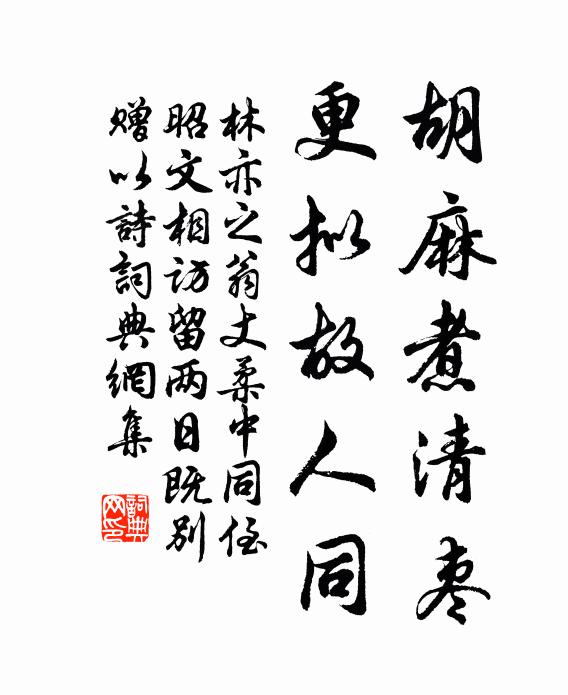 胡麻煮清枣
更拟故人同
林亦之翁丈柔中同侄
昭文相访留两日既别
赠以詩詞典網集
詞典网印